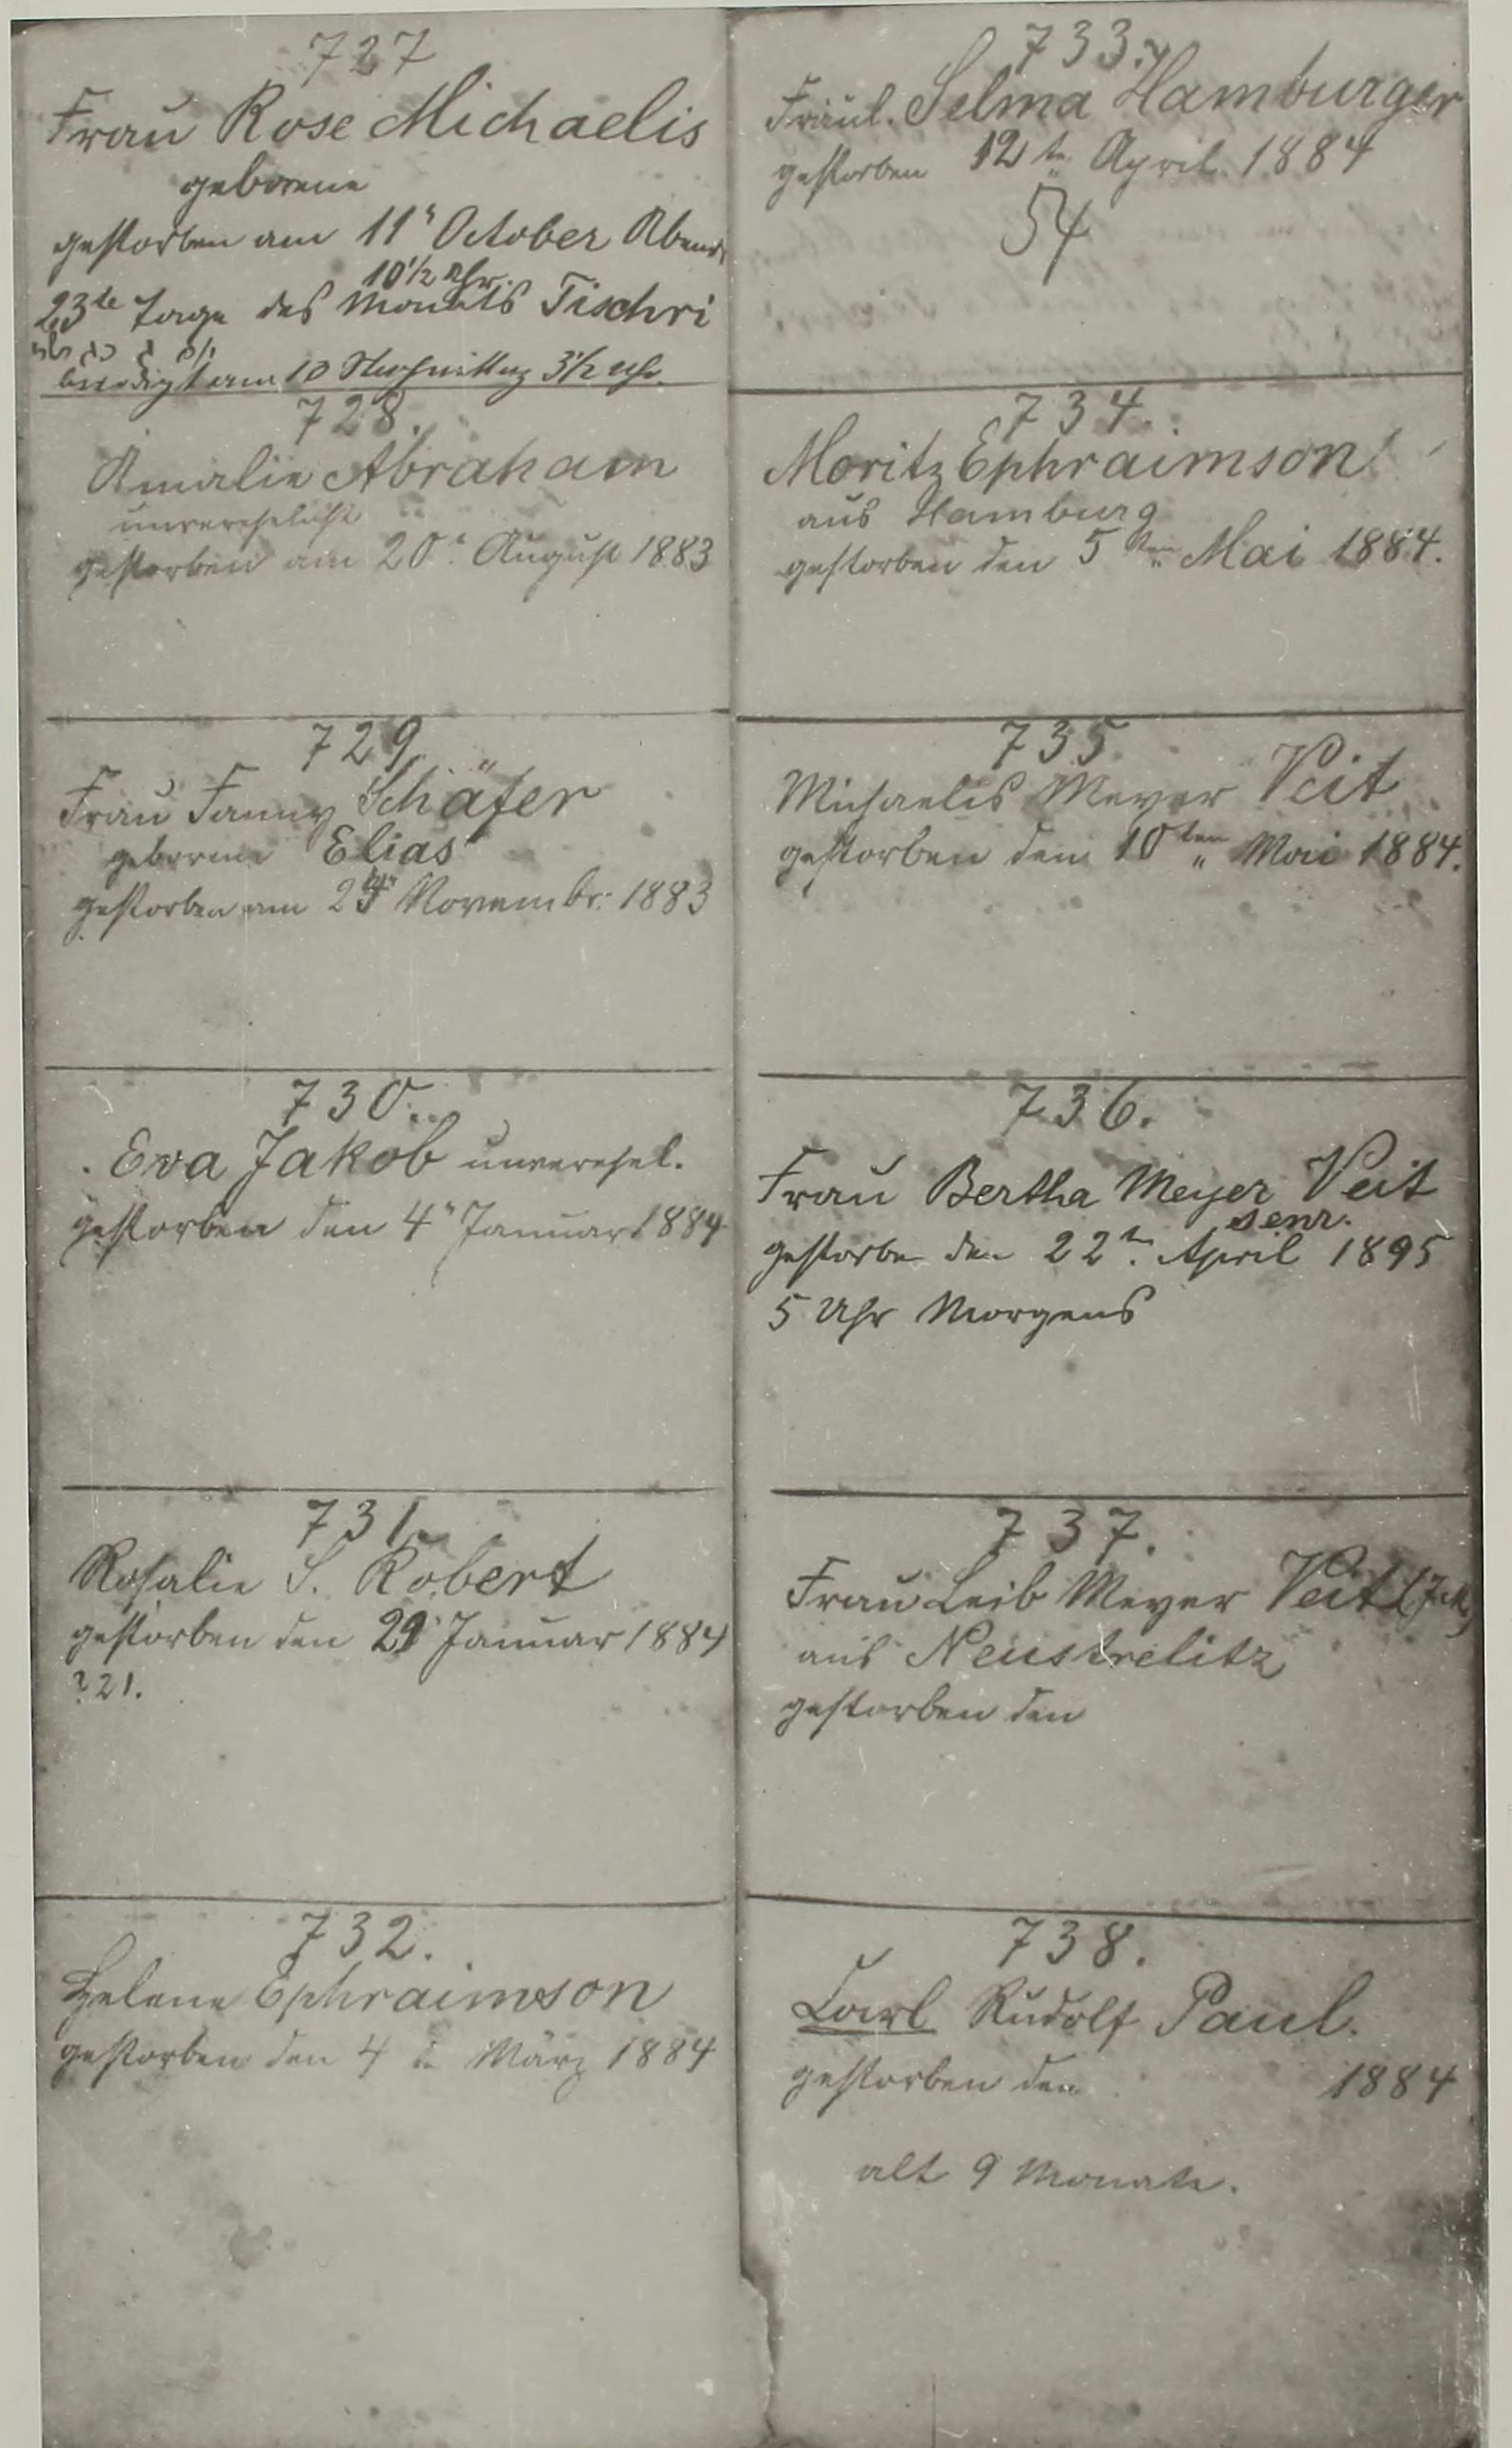 727
Frau Rose Michaelis
geborene
gestorben am 11" October Abends
10 1/2 Uhr.
23te Tage des Monats Tischri
beerdigt am 10 3 1/2 Uhr.
728.
Amalie Abraham
unverehelicht
gestorben am 20. August 1883
729.
Frau Fanny Schäfer
geborene Elias
gestorben am Novembr: 1883
730.
Eva Jakob unverehel.
gestorben den 4" Januar 1884
731.
Rosalie S. Robert
gestorben den Januar 1884
? 21.
732.
Helene Ephraimson
gestorben den 4 März 1884
733.
Fräul. Selma Hamburger
gestorben 12te April 1884
54
734.
Moritz Ephraimson
aus Hamburg
gestorben den 5ten Mai 1884.
735
Michaelis Meyer Veit
gestorben den 10ten Mai 1884.
736.
Frau Bertha Meyer Veit
senr.
gestorben den 22n. April 1895
5 Uhr Morgens
737.
Frau Leib Meyer Veit
aus Neustrelitz
gestorben den
738.
Carl Rudolf Paul.
gestorben den 1884
alt 9 Monate.